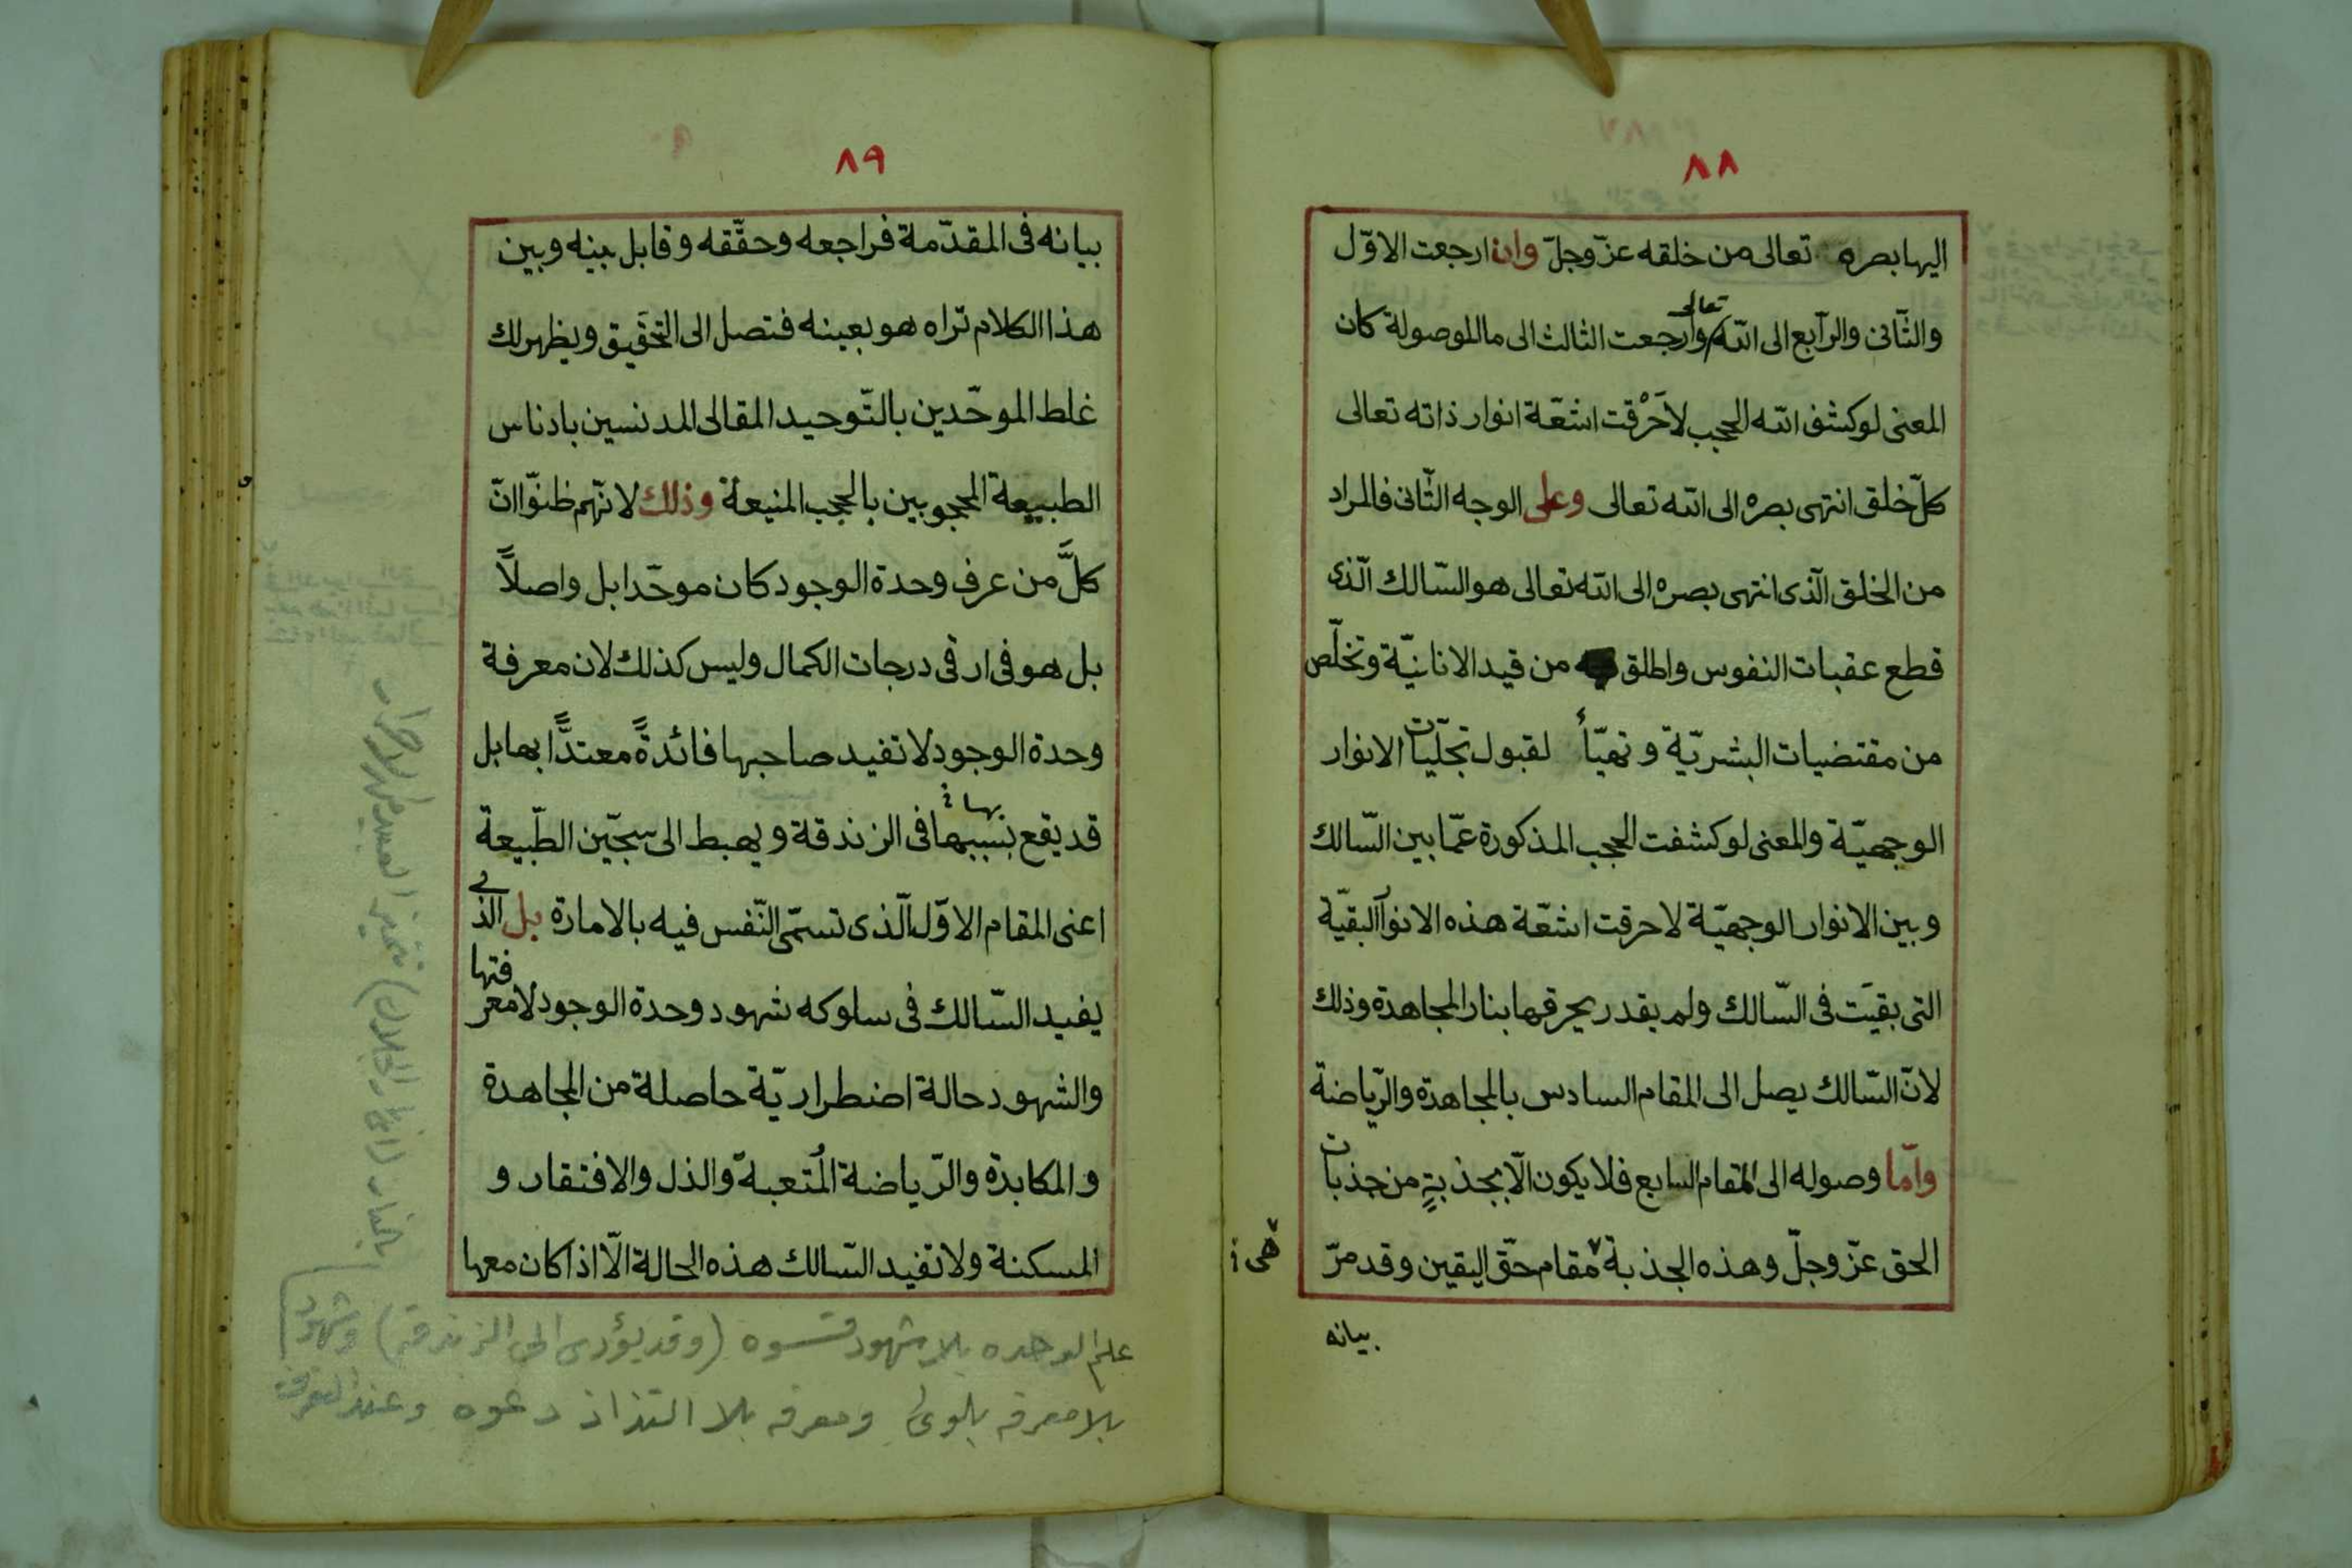 ٨٨
اليها بصره تعالى من خلقه عزّ وجلّ وان ارجعت الاوّل
والثّانى والرّابع الى الله تعالى وارجعت الثالث الى ما الموصولة كان
المعنى لو كشف الله الحجب لاَحْرَقت اشعّة انوار ذاته تعالى
كلّ خلق انتهى بصره الى الله تعالى وعلى الوجه الثّانى فالمراد
من الخلق الّذى انتهى بصره الى الله تعالى هو السّالك الّذى
قطع عقبات النفوس واطلق من قيد الانانيّة وتخلّص
من مقتضيات البشريّة وتهيّأ لقبول تجلّيات الانوار
الوجهيّة والمعنى لو كشفت الحجب المذكورة عمّا بين السّالك
وبين الانوار الوجهيّة لاحرقت اشعّة هذه الانوار البقيّة
التى بقيَت فى السّالك ولم يقدر يحرقها بنار المجاهدة وذلك
لانّ السّالك يصل الى المقام السادس بالمجاهدة والرّياضة
وامّا وصوله الى المقام السابع فلا يكون الّا بجذبةٍ من جذبات
الحق عزّ وجلّ وهذه الجذبة مقام حقّ اليقين وقد مرّ
هى
بيانه
٨٩
بيانه فى المقدّمة فراجعه وحقّقه وقابل بينه وبين
هذا الكلام تراه هو بعينه فتصل الى التحَقيق ويظهر لك
غلط الموحّدين بالتّوحيد المقالى المدنسين بادناس
الطبيعة المحجوبين بالحجب المنيعة وذلك لانّهم ظنّوا انّ
كلَّ من عرف وحدة الوجود كان موحّدا بل واصلاً
بل هو فى ارقى درجات الكمال وليس كذلك لان معرفة
وحدة الوجود لا تفيد صاحبها فائدةً معتدًّا بها بل
قد يقع بسببها فى الزندقة ويهبط الى سجّين الطّبيعة
بها
اعنى المقام الاوّل الّذى تسمّى النّفس فيه بالامارة بل الذى
يفيد السّالك فى سلوكه شهود وحدة الوجود لا معرفتها
والشهود حالة اضطراريّة حاصلة من المجاهدة
والمكابدة والرّياضة المُتعبة والذل والافتقار و
المسكنة ولا تفيد السّالك هذه الحالة الّا اذا كان معها
علم الوحده بلا شهود قسوه (وقد يؤدى الى الزندقه) وشهود
بلا معرفه بلوى ومعرفه بلا التذاذ دعوه وعند